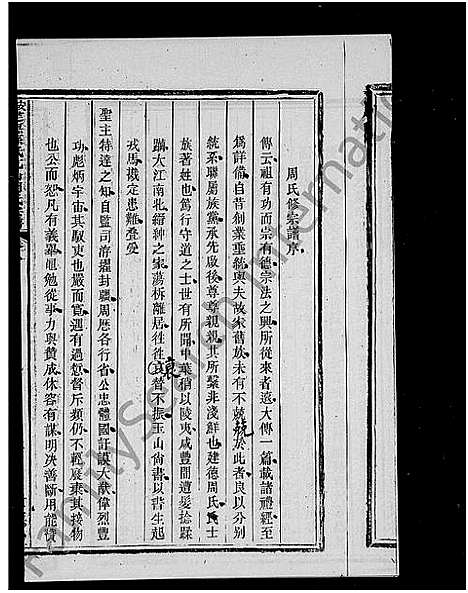 周氏修宗譜序
傳云祖有功而宗有德宗法之興所從來者遠大傳一篇載諸禮經至
為詳備自昔創業垂統與夫故家舊族未有不兢兢於此者良以分別
統系聯屬族黨承先啟後尊尊親親其所繫非淺鮮也建德周氏氏士
族著姓也篤行守道之士世有所聞中葉稍以陵夷咸豐間遭髮捻蹂
躪大江南北縉紳之家蕩柝離居徃徃哀替不振玉山尚書以書生起
戎馬戡定患難疊受
聖主特達之知自監司洊擢封疆周歷各行省公忠體國訏謨大猷偉烈豐
功彪炳宇宙其馭吏也嚴而寬遇有過愆督斥類仍不輕廢棄其接物
也公而恕凡有義舉黽勉從事力與贊成休容有謀明決善斷用能贊
FamilySearch International